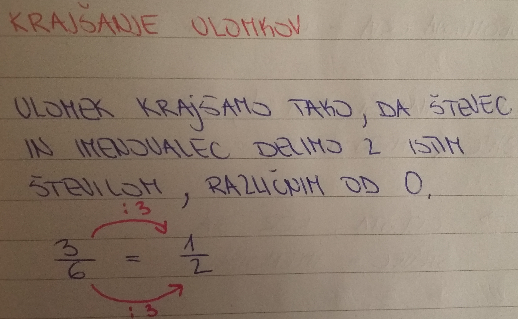 KRAJŠANJE ULOMKOV
ULOMEK KRAJŠAMO TAKO, DA ŠTEVEC
IN IMENOVALEC DELIMO Z ISTIM
ŠTEVILOM, RAZLIČNIM OD 0.
:3
3/6 = 1/2
:3